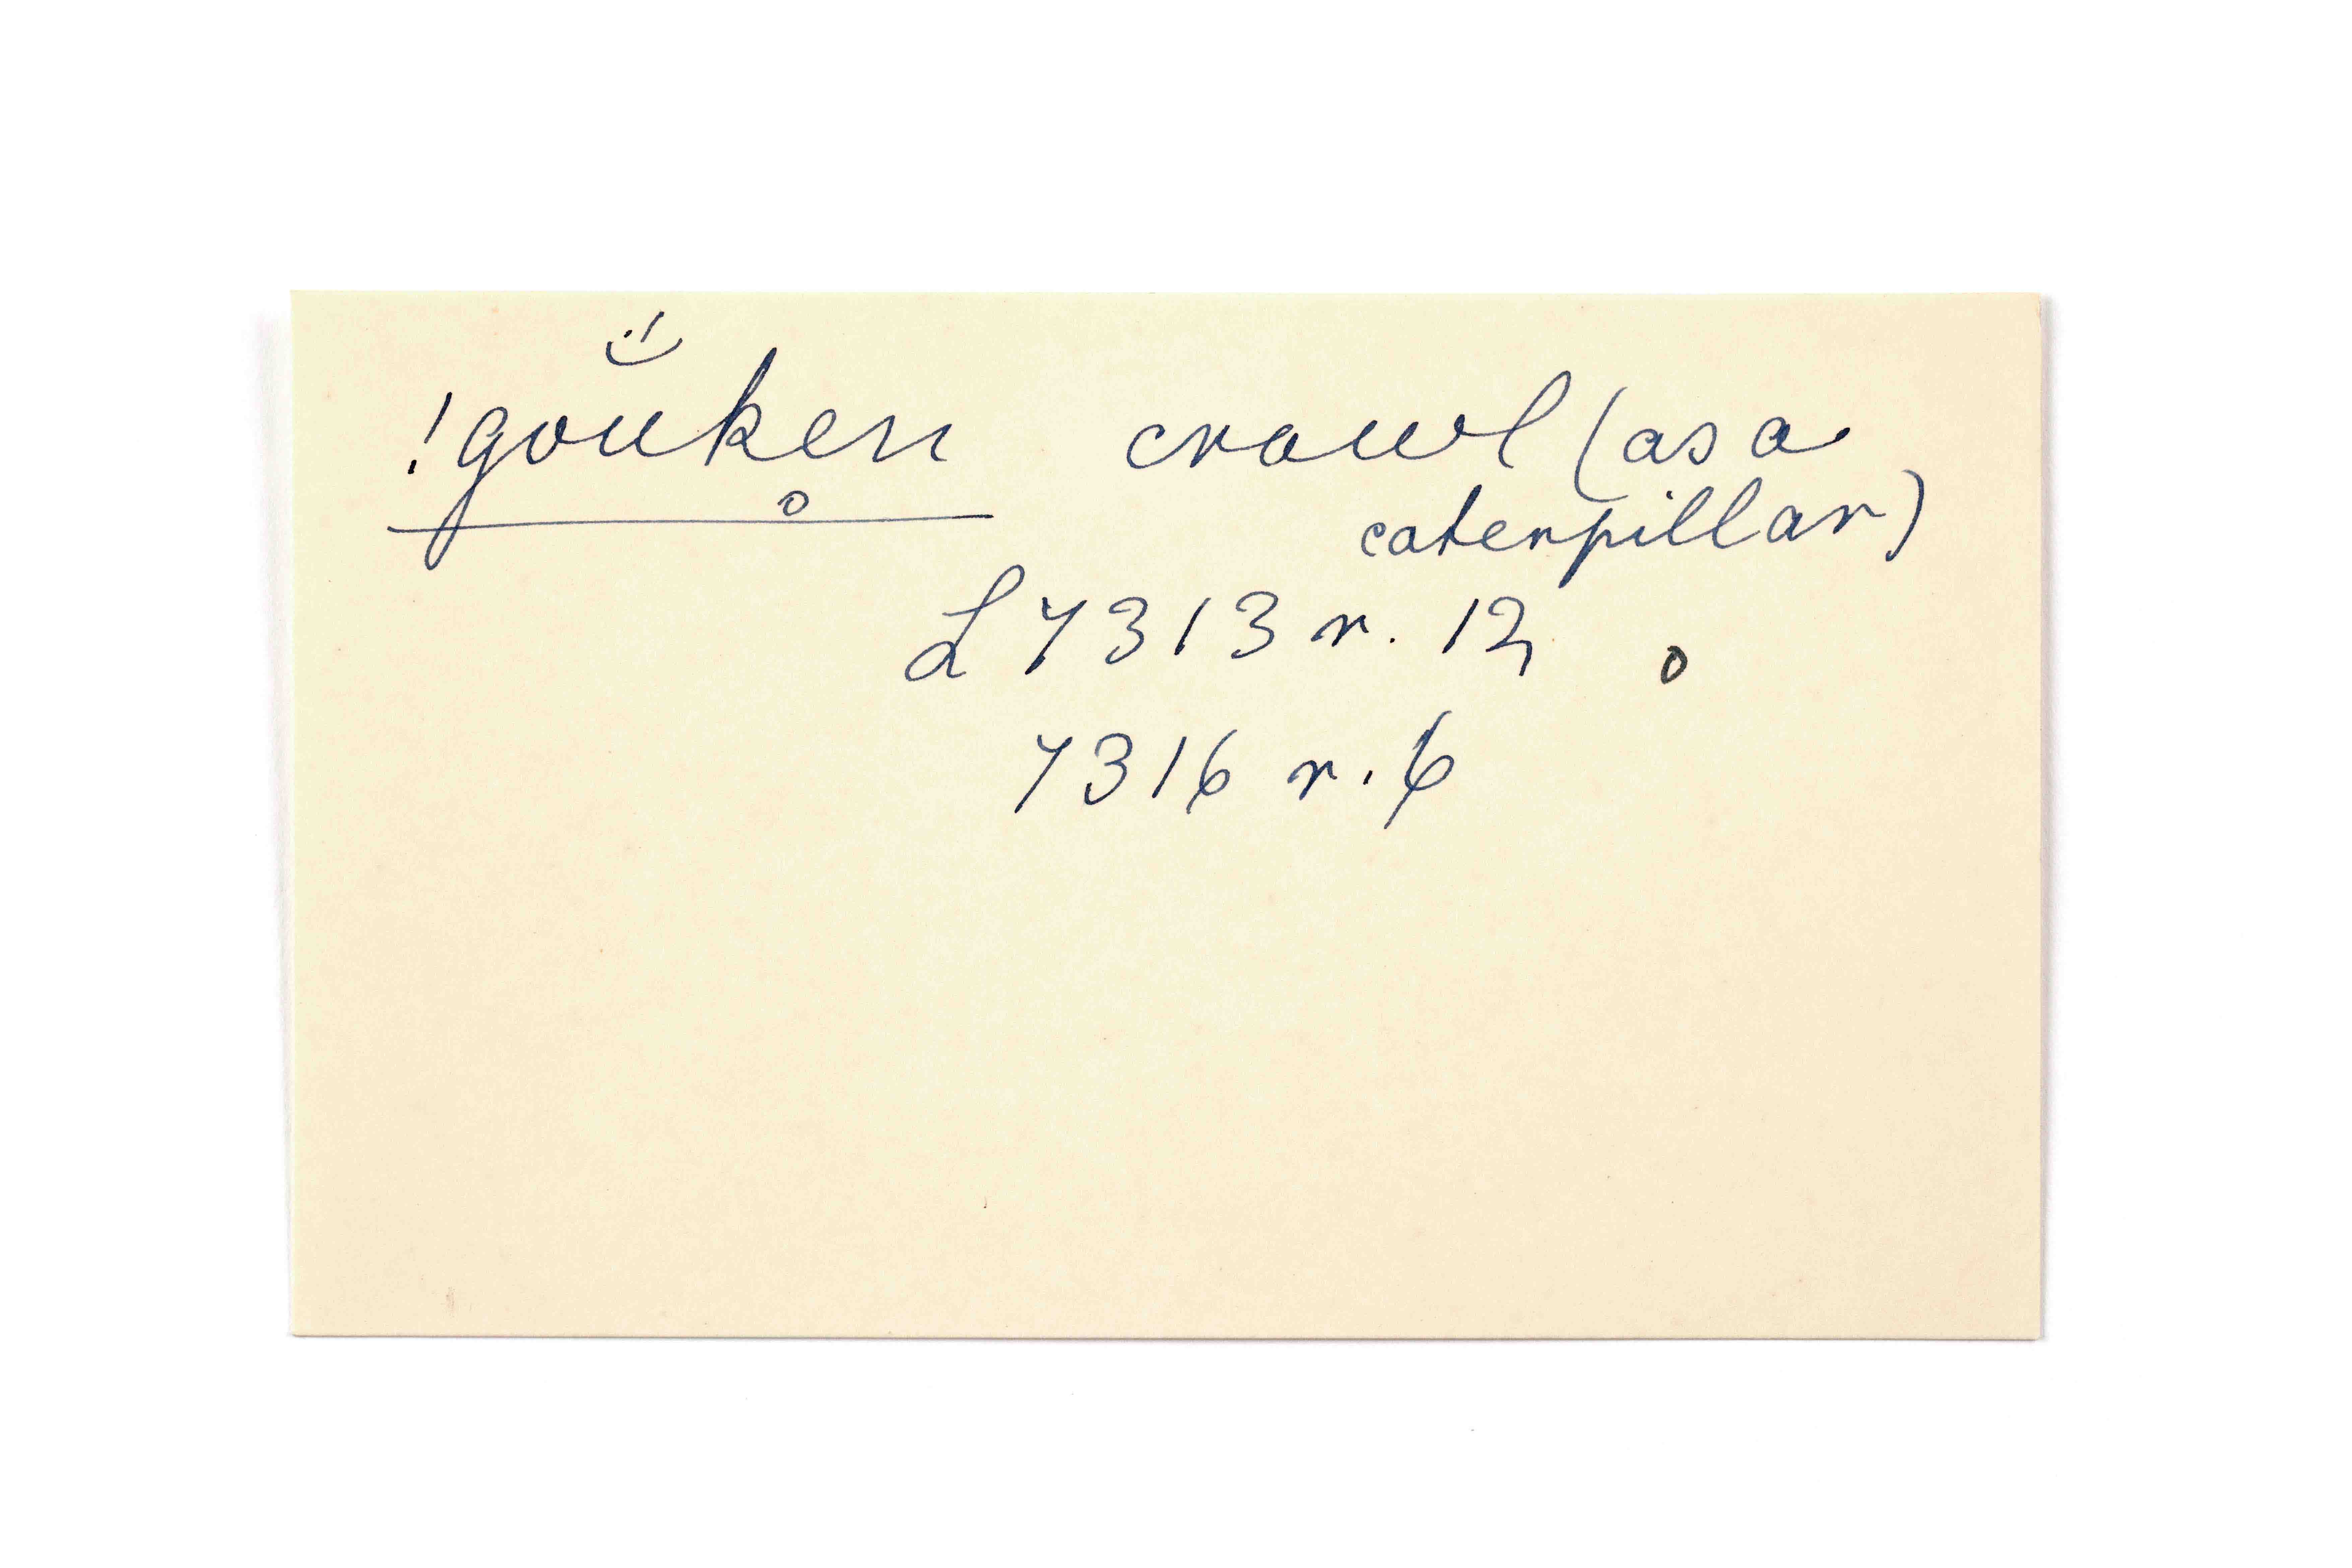 !gŏúken̥ crawl (as a
caterpillar)
L 7313 r. 12 o
7316 r. 6